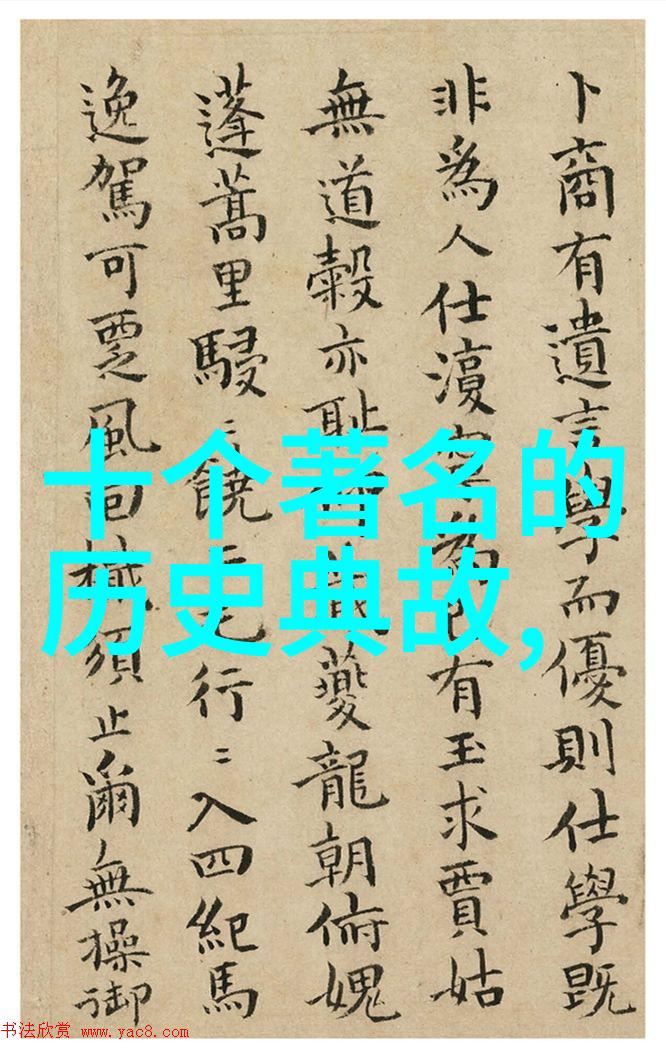 卜商有遺言學而優則仕學既
非為人仕為有玉求賈姑
無道穀亦恥夔龍朝俯媿
蓬蒿里駸〻饒二毛行〻入四紀馬
逸駕可覂風回檝須止爾無操御
十个著名的
历史典故,
书法欣赏 www.yac8.com